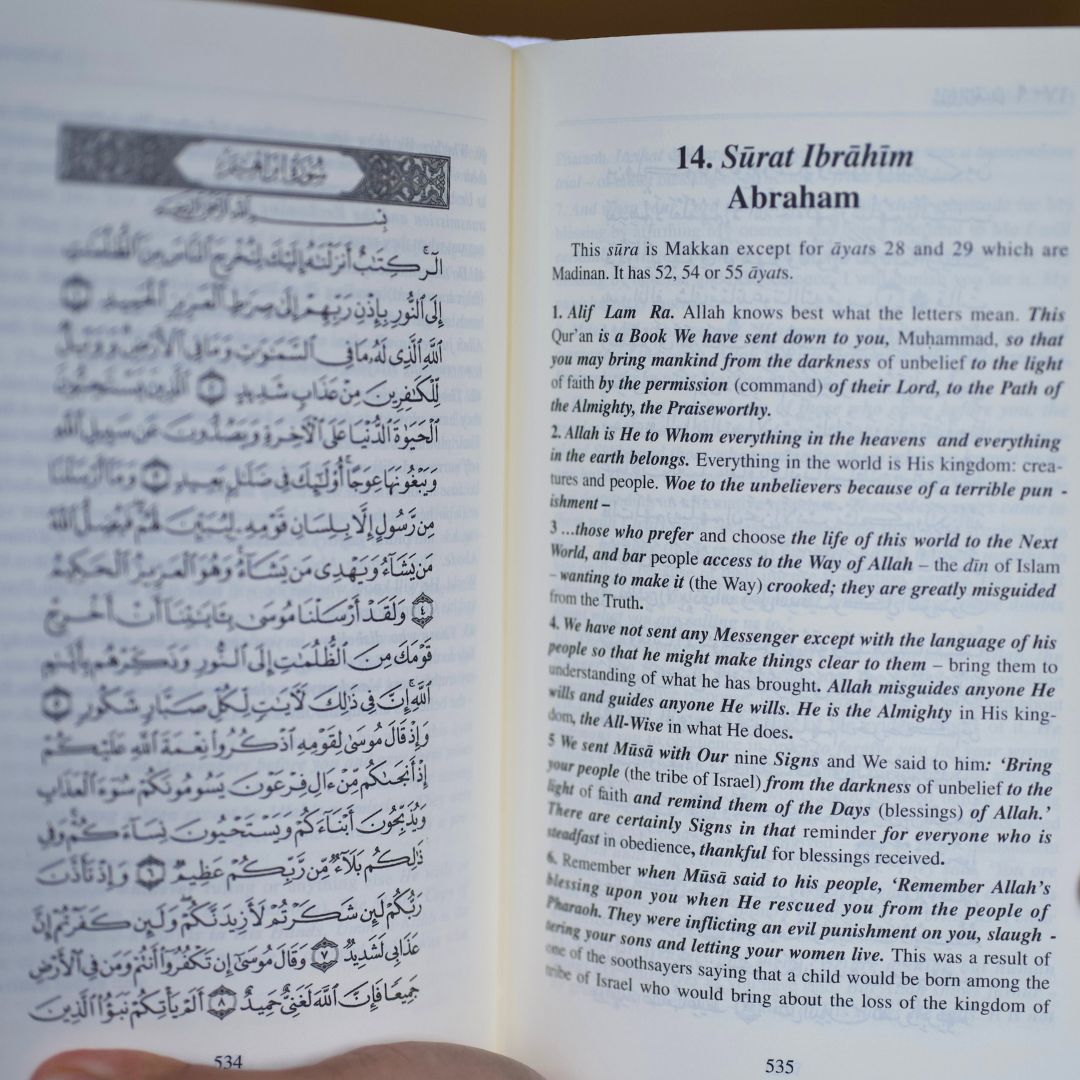 سُورَةُ إِبْرَاهِيمَ
بِسْمِ اللَّهِ الرَّحْمَٰنِ الرَّحِيمِ
الٓر كِتَٰبٌ أَنزَلْنَٰهُ إِلَيْكَ لِتُخْرِجَ ٱلنَّاسَ مِنَ ٱلظُّلُمَٰتِ
إِلَى ٱلنُّورِ بِإِذْنِ رَبِّهِمْ إِلَىٰ صِرَٰطِ ٱلْعَزِيزِ ٱلْحَمِيدِ ١
ٱللَّهِ ٱلَّذِى لَهُۥ مَا فِى ٱلسَّمَٰوَٰتِ وَمَا فِى ٱلْأَرْضِ وَوَيْلٌ
لِّلْكَٰفِرِينَ مِنْ عَذَابٍ شَدِيدٍ ٢ ٱلَّذِينَ يَسْتَحِبُّونَ
ٱلْحَيَوٰةَ ٱلدُّنْيَا عَلَى ٱلْءَاخِرَةِ وَيَصُدُّونَ عَن سَبِيلِ ٱللَّهِ
وَيَبْغُونَهَا عِوَجًا أُو۟لَٰٓئِكَ فِى ضَلَٰلٍۭ بَعِيدٍ ٣ وَمَآ أَرْسَلْنَا
مِن رَّسُولٍ إِلَّا بِلِسَانِ قَوْمِهِۦ لِيُبَيِّنَ لَهُمْ فَيُضِلُّ ٱللَّهُ
مَن يَشَآءُ وَيَهْدِى مَن يَشَآءُ وَهُوَ ٱلْعَزِيزُ ٱلْحَكِيمُ
٤ وَلَقَدْ أَرْسَلْنَا مُوسَىٰ بِـَٔايَٰتِنَآ أَنْ أَخْرِجْ
قَوْمَكَ مِنَ ٱلظُّلُمَٰتِ إِلَى ٱلنُّورِ وَذَكِّرْهُم بِأَيَّىٰمِ
ٱللَّهِ إِنَّ فِى ذَٰلِكَ لَءَايَٰتٍ لِّكُلِّ صَبَّارٍ شَكُورٍ ٥
وَإِذْ قَالَ مُوسَىٰ لِقَوْمِهِ ٱذْكُرُوا۟ نِعْمَةَ ٱللَّهِ عَلَيْكُمْ
إِذْ أَنجَىٰكُم مِّنْ ءَالِ فِرْعَوْنَ يَسُومُونَكُمْ سُوٓءَ ٱلْعَذَابِ
وَيُذَبِّحُونَ أَبْنَآءَكُمْ وَيَسْتَحْيُونَ نِسَآءَكُمْ وَفِى
ذَٰلِكُم بَلَآءٌ مِّن رَّبِّكُمْ عَظِيمٌ ٦ وَإِذْ تَأَذَّنَ
رَبُّكُمْ لَئِن شَكَرْتُمْ لَأَزِيدَنَّكُمْ وَلَئِن كَفَرْتُمْ إِنَّ
عَذَابِى لَشَدِيدٌ ٧ وَقَالَ مُوسَىٰٓ إِن تَكْفُرُوٓا۟ أَنتُمْ وَمَن فِى ٱلْأَرْضِ
جَمِيعًا فَإِنَّ ٱللَّهَ لَغَنِىٌّ حَمِيدٌ ٨ أَلَمْ يَأْتِكُمْ نَبَؤُا۟ ٱلَّذِينَ
534
14. Sūrat Ibrāhīm
Abraham
This sūra is Makkan except for āyats 28 and 29 which are
Madinan. It has 52, 54 or 55 āyats.
1. Alif Lam Ra. Allah knows best what the letters mean. This
Qur'an is a Book We have sent down to you, Muḥammad, so that
you may bring mankind from the darkness of unbelief to the light
of faith by the permission (command) of their Lord, to the Path of
the Almighty, the Praiseworthy.
2. Allah is He to Whom everything in the heavens and everything
in the earth belongs. Everything in the world is His kingdom: crea-
tures and people. Woe to the unbelievers because of a terrible pun -
ishment –
3 ...those who prefer and choose the life of this world to the Next
World, and bar people access to the Way of Allah – the dīn of Islam
– wanting to make it (the Way) crooked; they are greatly misguided
from the Truth.
4. We have not sent any Messenger except with the language of his
people so that he might make things clear to them – bring them to
understanding of what he has brought. Allah misguides anyone He
wills and guides anyone He wills. He is the Almighty in His king-
dom, the All-Wise in what He does.
5 We sent Mūsā with Our nine Signs and We said to him: 'Bring
your people (the tribe of Israel) from the darkness of unbelief to the
light of faith and remind them of the Days (blessings) of Allah.'
There are certainly Signs in that reminder for everyone who is
steadfast in obedience, thankful for blessings received.
6. Remember when Mūsā said to his people, 'Remember Allah's
blessing upon you when He rescued you from the people of
Pharaoh. They were inflicting an evil punishment on you, slaugh -
tering your sons and letting your women live. This was a result of
one of the soothsayers saying that a child would be born among the
tribe of Israel who would bring about the loss of the kingdom of
535